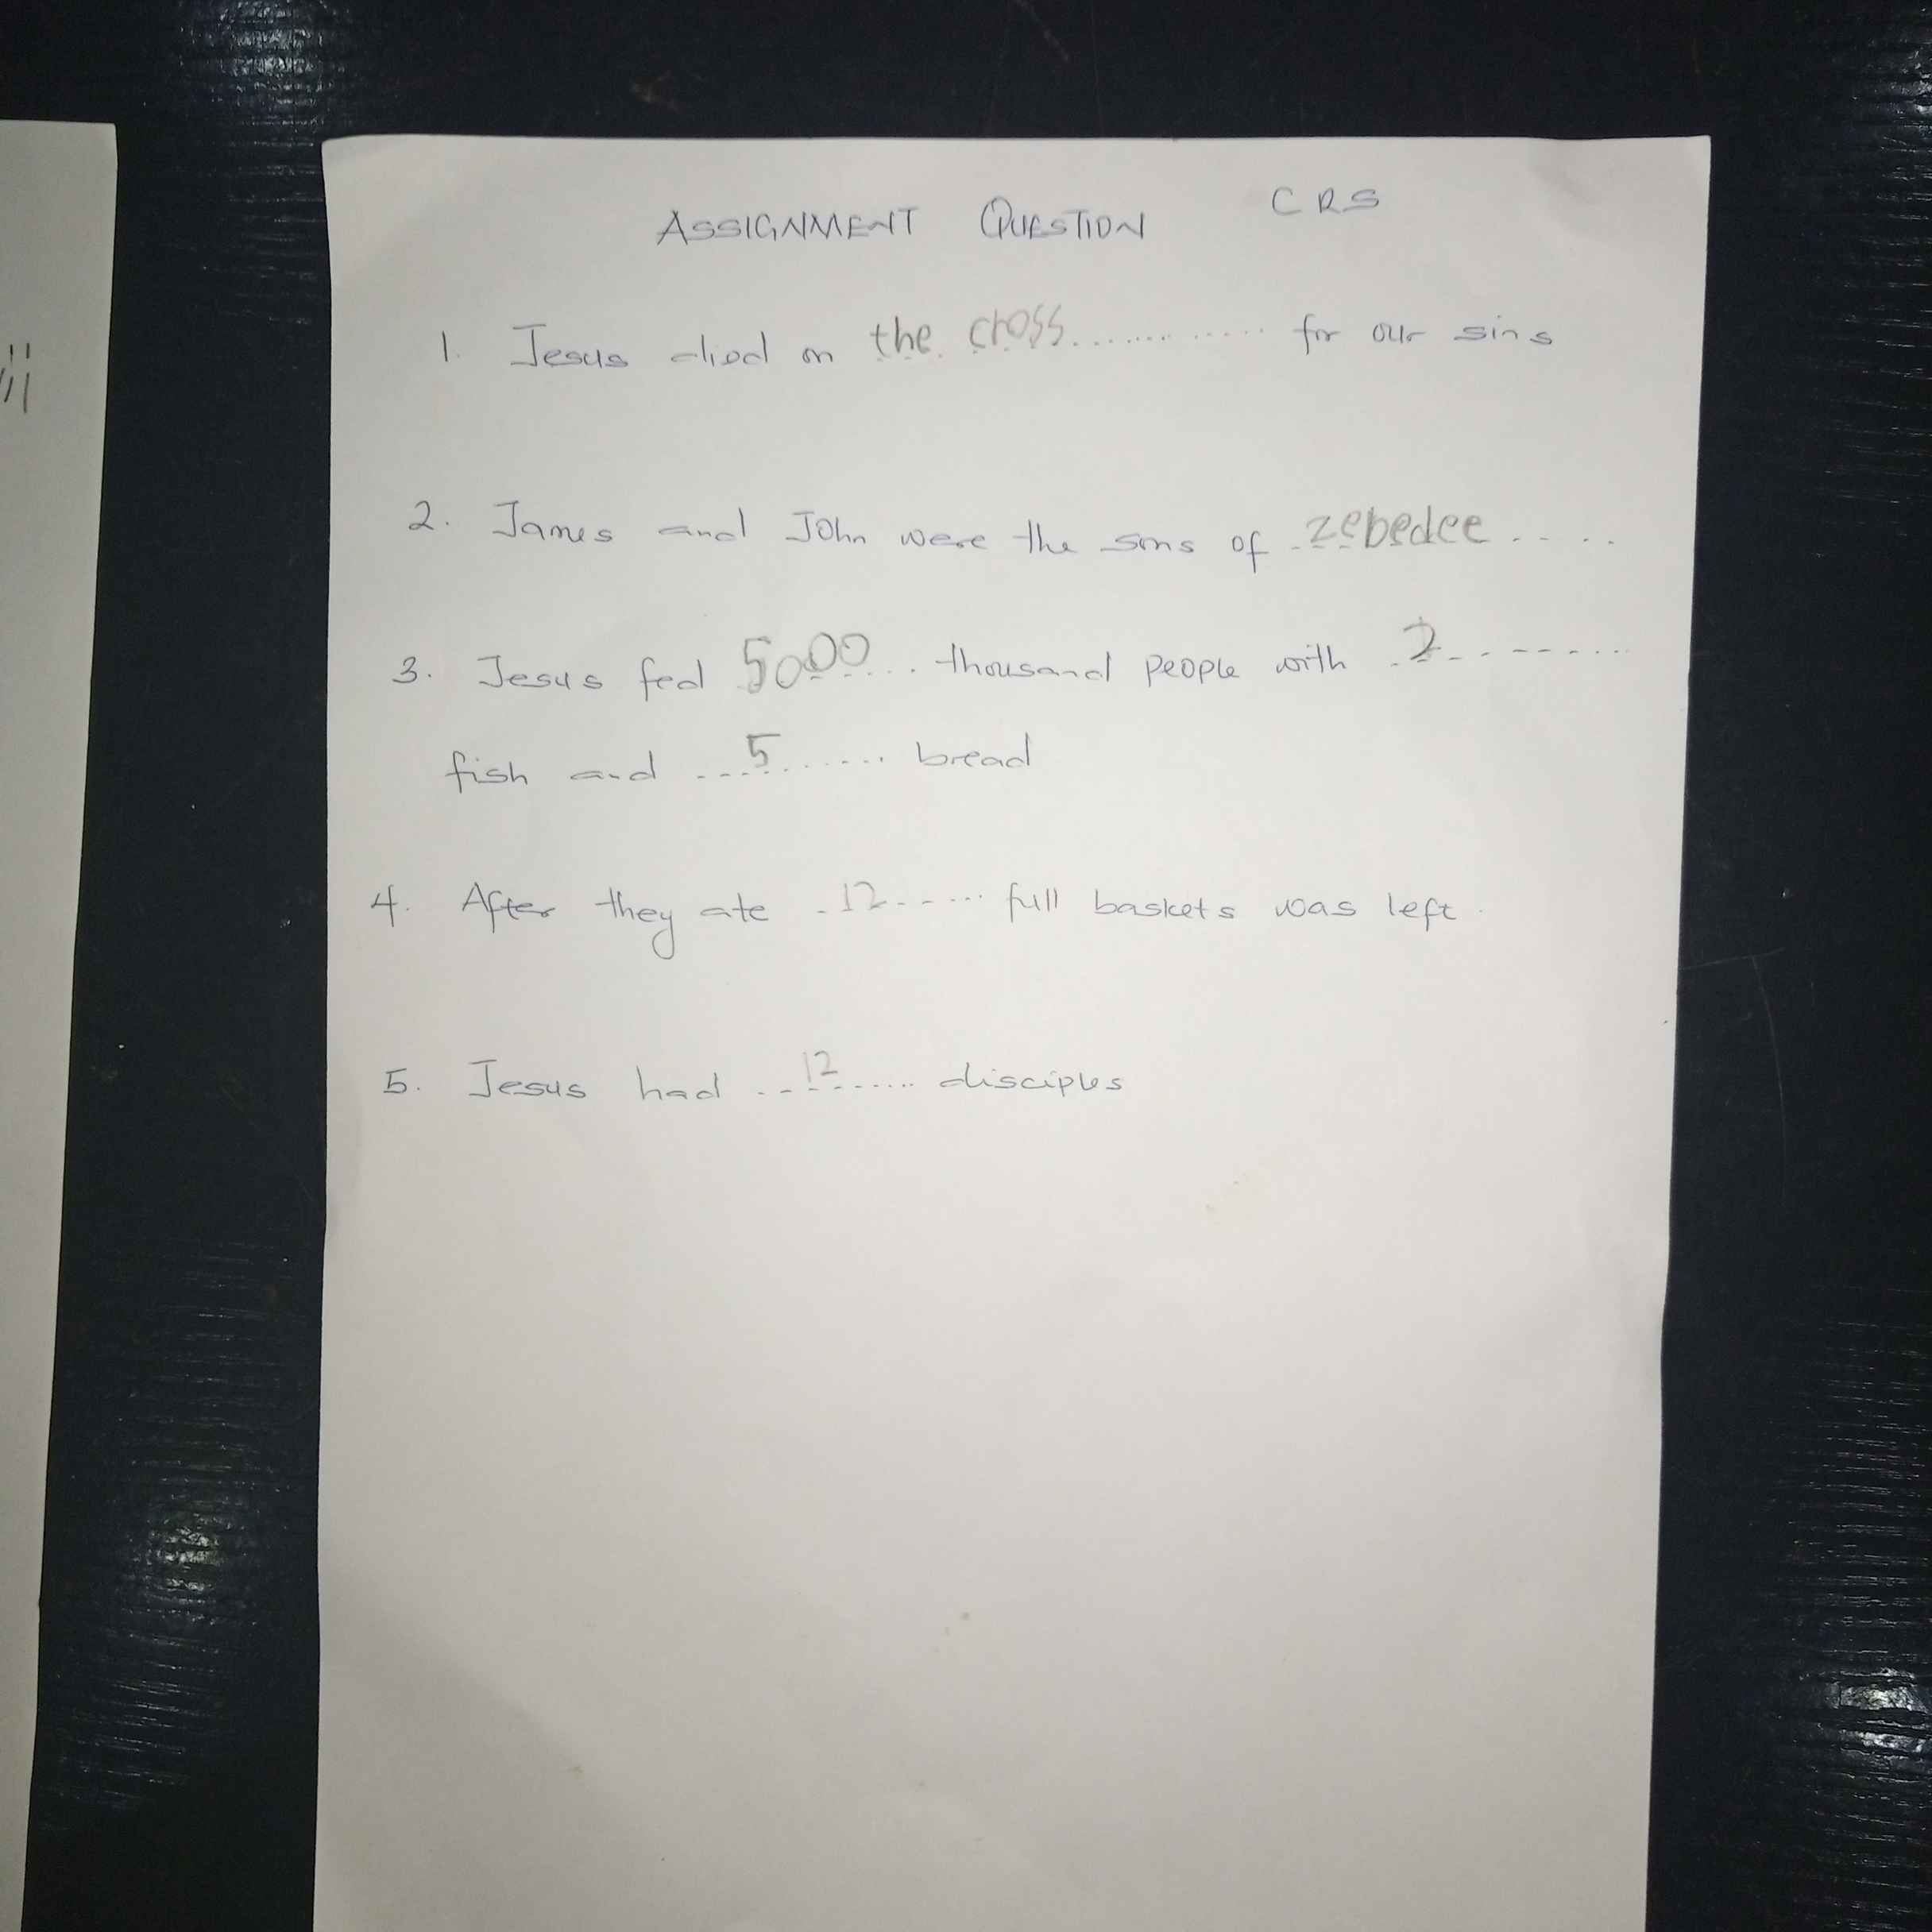 CRS
ASSIGNMENT QUESTION
1. Jesus died on the cross.............. for our sins
2. James and John were the sons of ..zebedee.....
3. Jesus fed 5000... thousand people with ..2.........
fish and ....5....... bread
4. After they ate ..12....... full baskets was left
5. Jesus had ...12....... disciples